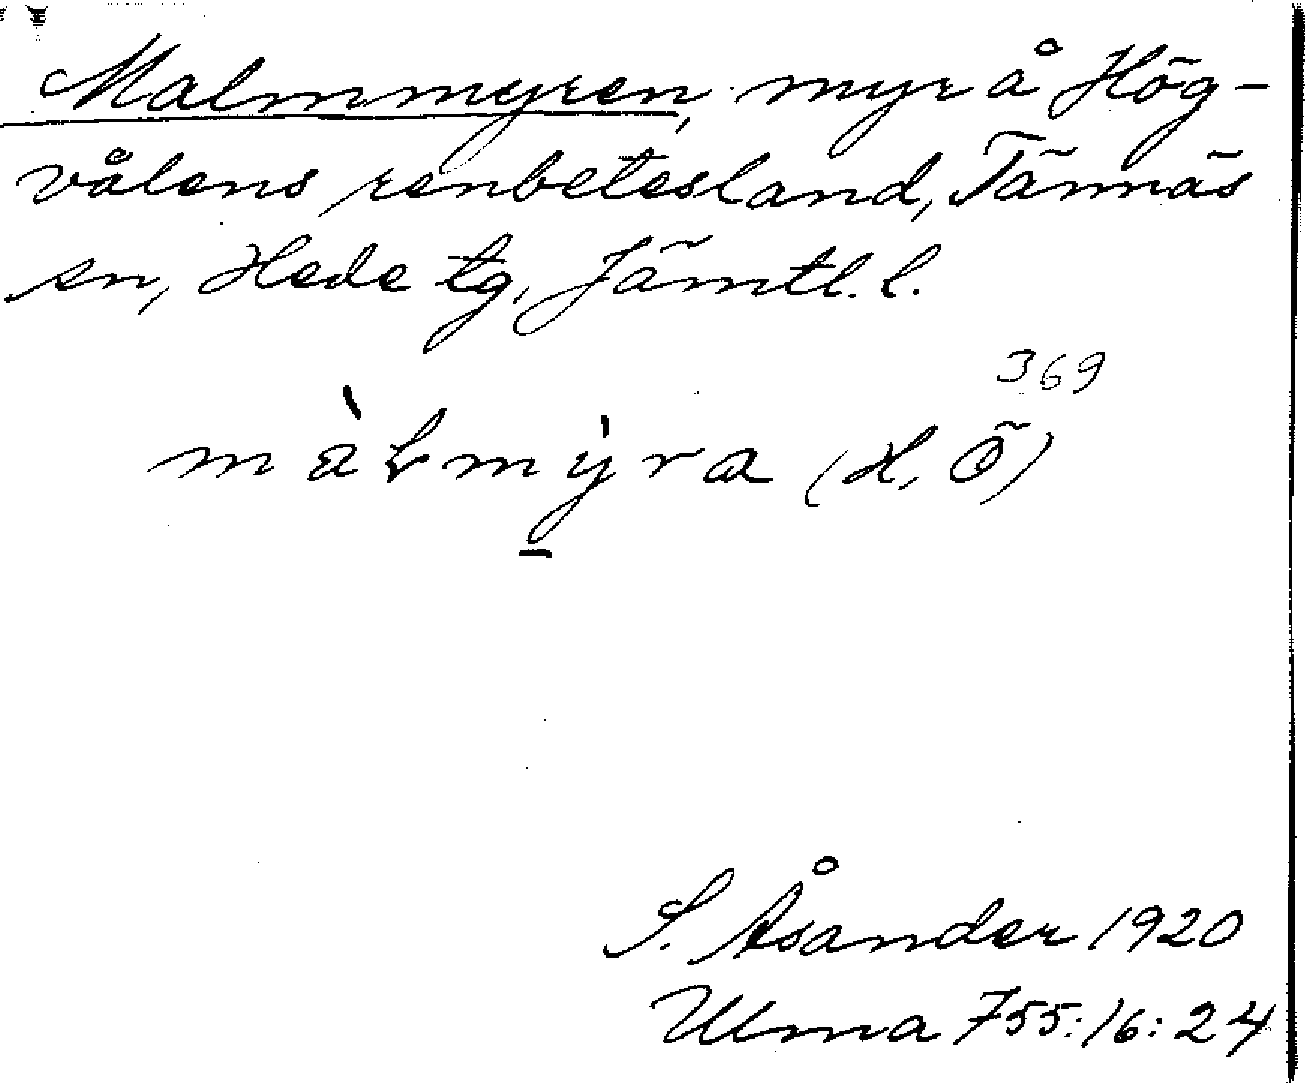 Malmmyren, myr å Hög-
vålens renbetesland, Tännäs
sn, Hede tg, Jämtl. l.
369
màɫmỳra (H, Ö)
S. Åsander 1920
Ulma 755:16:24